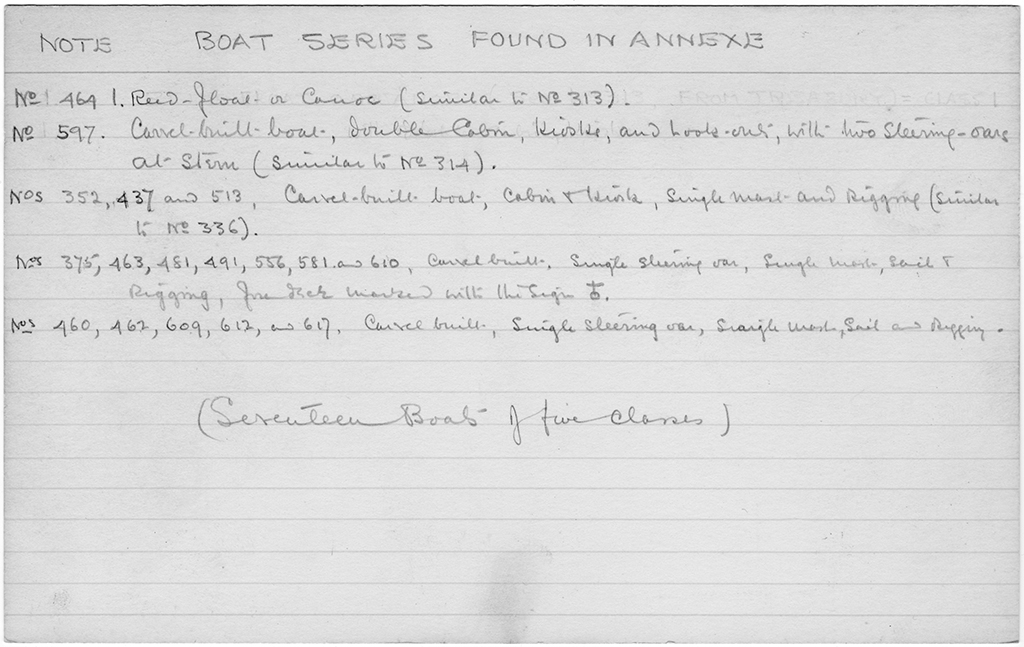 NOTE BOAT SERIES FOUND IN ANNEXE
No 464 1. Reed-float or Canoe (Similar to No 313).
No 597. Carvel-built-boat, double Cabin, Kiosks, and look-outs, with two steering-oars
at Stern (Similar to No 314).
Nos 352, 437 and 513, Carvel-built boat, Cabin & Kiosk, Single mast and Rigging (Similar
to No 336).
Nos 375, 463, 481, 491, 556, 581 and 610, Carvel built, Single steering oar, Single mast, Sail &
Rigging, fore deck marked with the sign
Nos 460, 462, 609, 612, and 617, Carvel built, Single steering oar, Single mast, Sail and Rigging.
(Seventeen Boats of five classes)